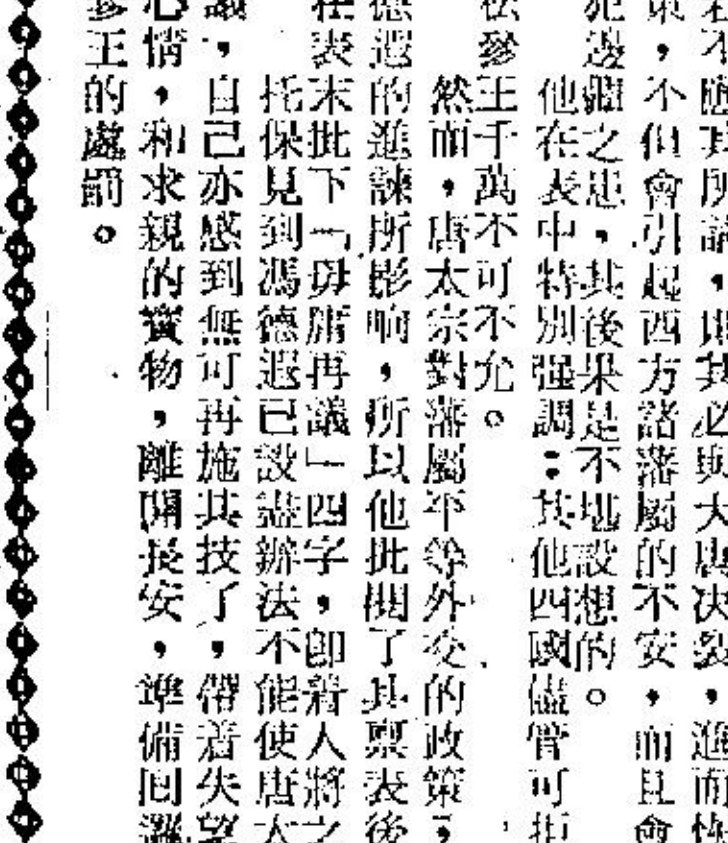 不墮其所謀，則其必與大唐决裂，進而
策，不但會引起西方諸藩屬的不安，而且會
犯邊疆之患，其後果是不堪設想的。
他在表中，特別强調：其他四國儘管可拒
松發王千萬不可不允。
然而，唐太宗對藩屬平等外交的政策，
德遐的進諫所影响，所以他批閱了其禀表後
在表末批下「毋庸再議」四字，即着人將之
托保見到馮德遐已設盡辦法不能使唐太
議，自己亦感到無可再施其技了，帶着失望
心情，和求親的寳物，離開長安，準備回
王的處罰。